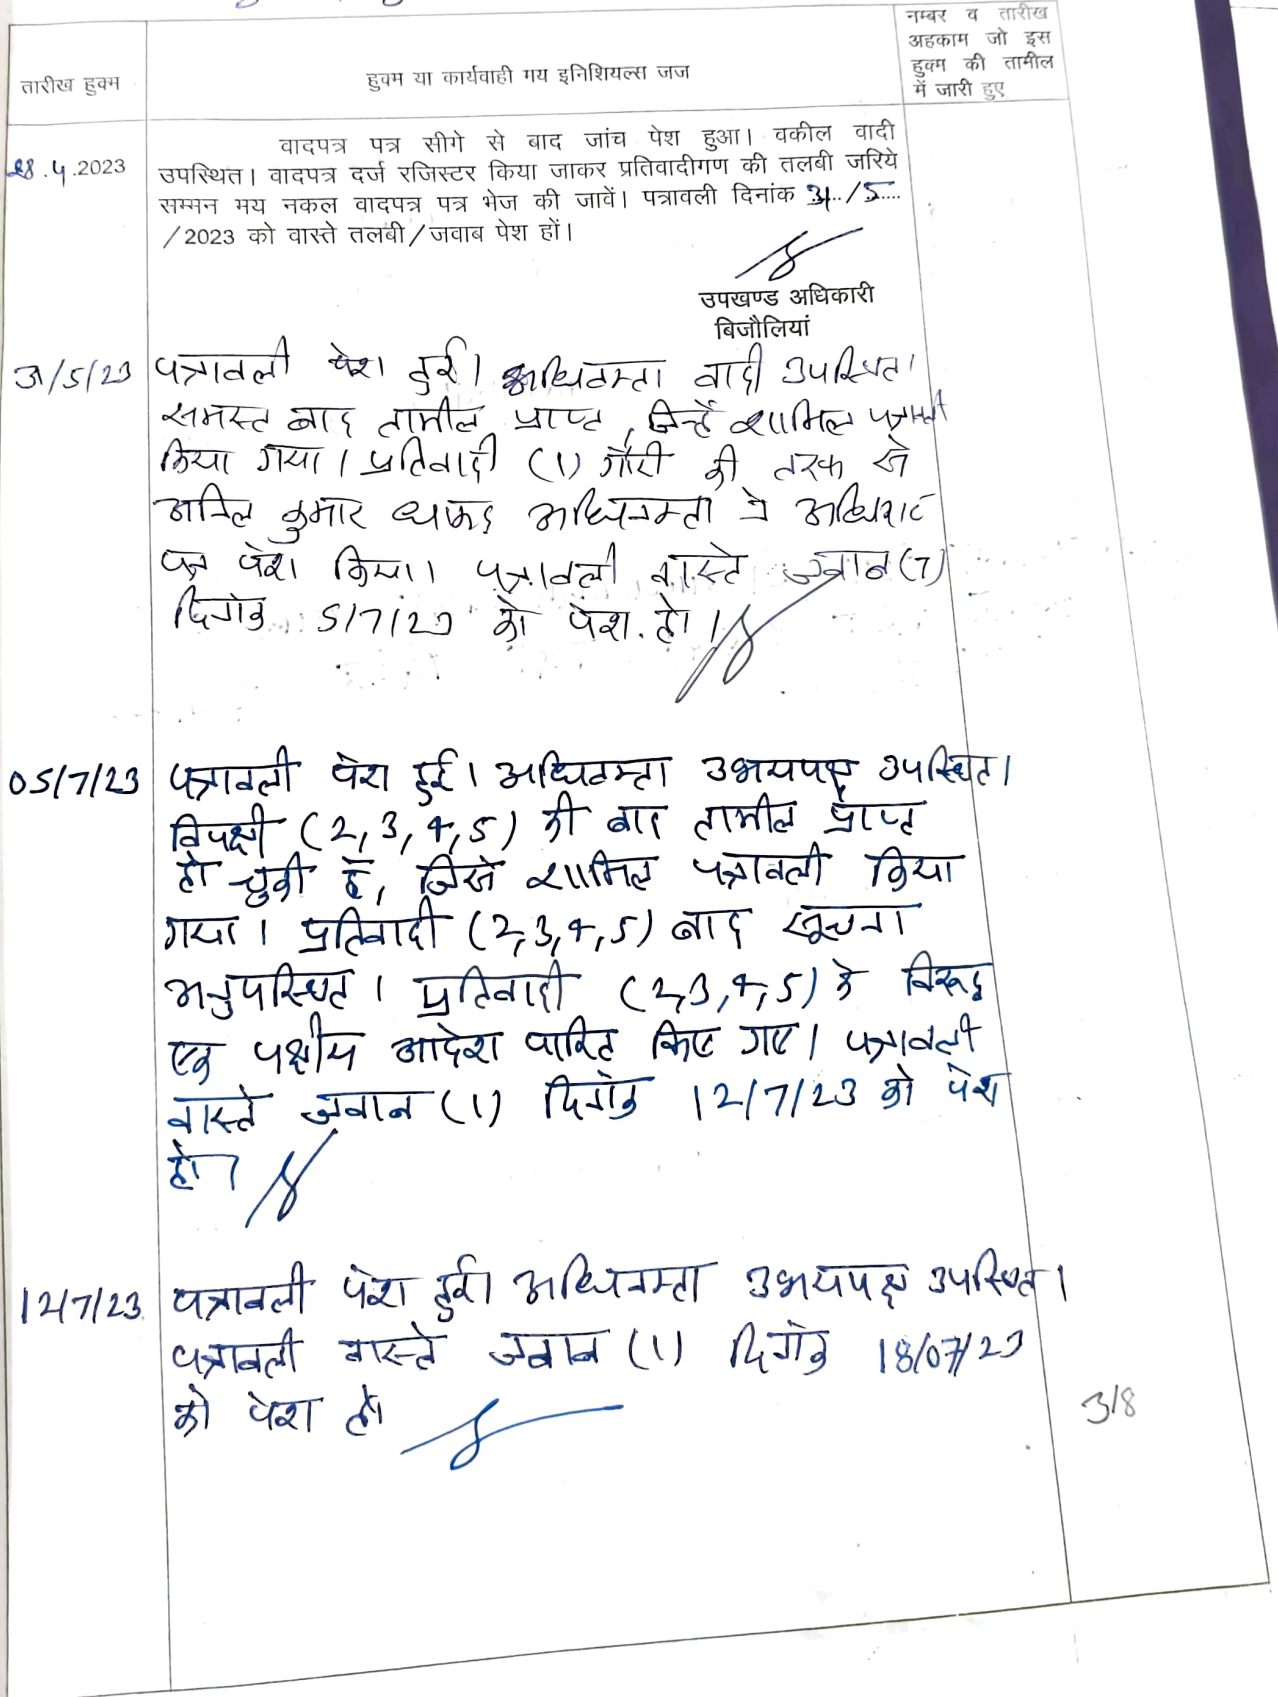 नम्बर व तारीख
अहकाम जो इस
हुक्म की तामील
में जारी हुए
तारीख हुक्म
हुक्म या कार्यवाही मय इनिशियल्स जज
वादपत्र पत्र सीगे से बाद जांच पेश हुआ। वकील वादी
28.4.2023
उपस्थित। वादपत्र दर्ज रजिस्टर किया जाकर प्रतिवादीगण की तलबी जरिये
सम्मन मय नकल वादपत्र पत्र भेज की जावें। पत्रावली दिनांक 31../5....
/2023 को वास्ते तलबी/जवाब पेश हों।
उपखण्ड अधिकारी
बिजौलियां
31/5/23 पत्रावली पेश हुई। अधिवक्ता वादी उपस्थित।
समस्त बाद तामील प्राप्त, जिन्हें शामिल पत्रावली
किया गया। प्रतिवादी (1) गौरी की तरफ से
अनिल कुमार अधिवक्ता ने
पत्र पेश किया। पत्रावली वास्ते जवाब (7)
दिनांक 5/7/23 को पेश हो।
05/7/23 पत्रावली पेश हुई। अधिवक्ता उभयपक्ष उपस्थित।
विपक्षी (2,3,4,5) की बाद तामील प्राप्त
हो चुकी है, जिसे शामिल पत्रावली किया
गया। प्रतिवादी (2,3,4,5) बाद सूचना
अनुपस्थित। प्रतिवादी (2,3,4,5) के विरूद्ध
एक पक्षीय आदेश पारित किए गए। पत्रावली
वास्ते जवाब (1) दिनांक 12/7/23 को पेश
हो।
12/7/23 पत्रावली पेश हुई। अधिवक्ता उभयपक्ष उपस्थित।
पत्रावली वास्ते जवाब (1) दिनांक 18/07/23
को पेश हो
3/8